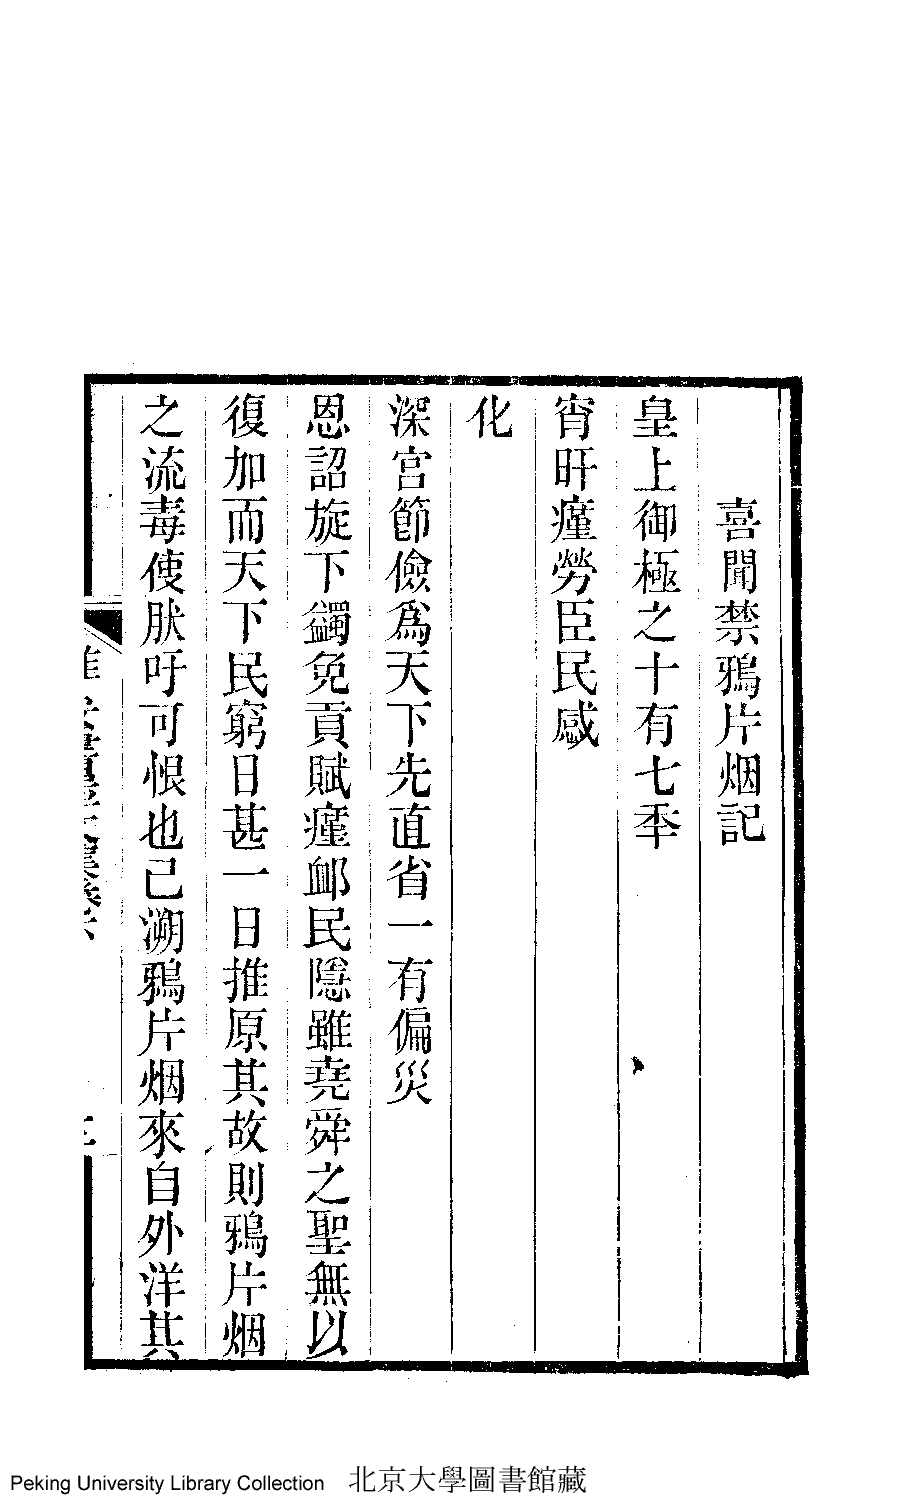 喜聞禁鴉片烟記
皇上御極之十有七秊
宵旰癉勞臣民感
化
深宮節儉爲天下先直省一有偏災
恩詔旋下蠲免貢賦癉卹民隱雖堯舜之聖無以
復加而天下民窮日甚一日推原其故則鴉片烟
之流毒使肰吁可恨也己溯鴉片烟來自外洋其
Peking University Library Collection 北京大學圖書館藏